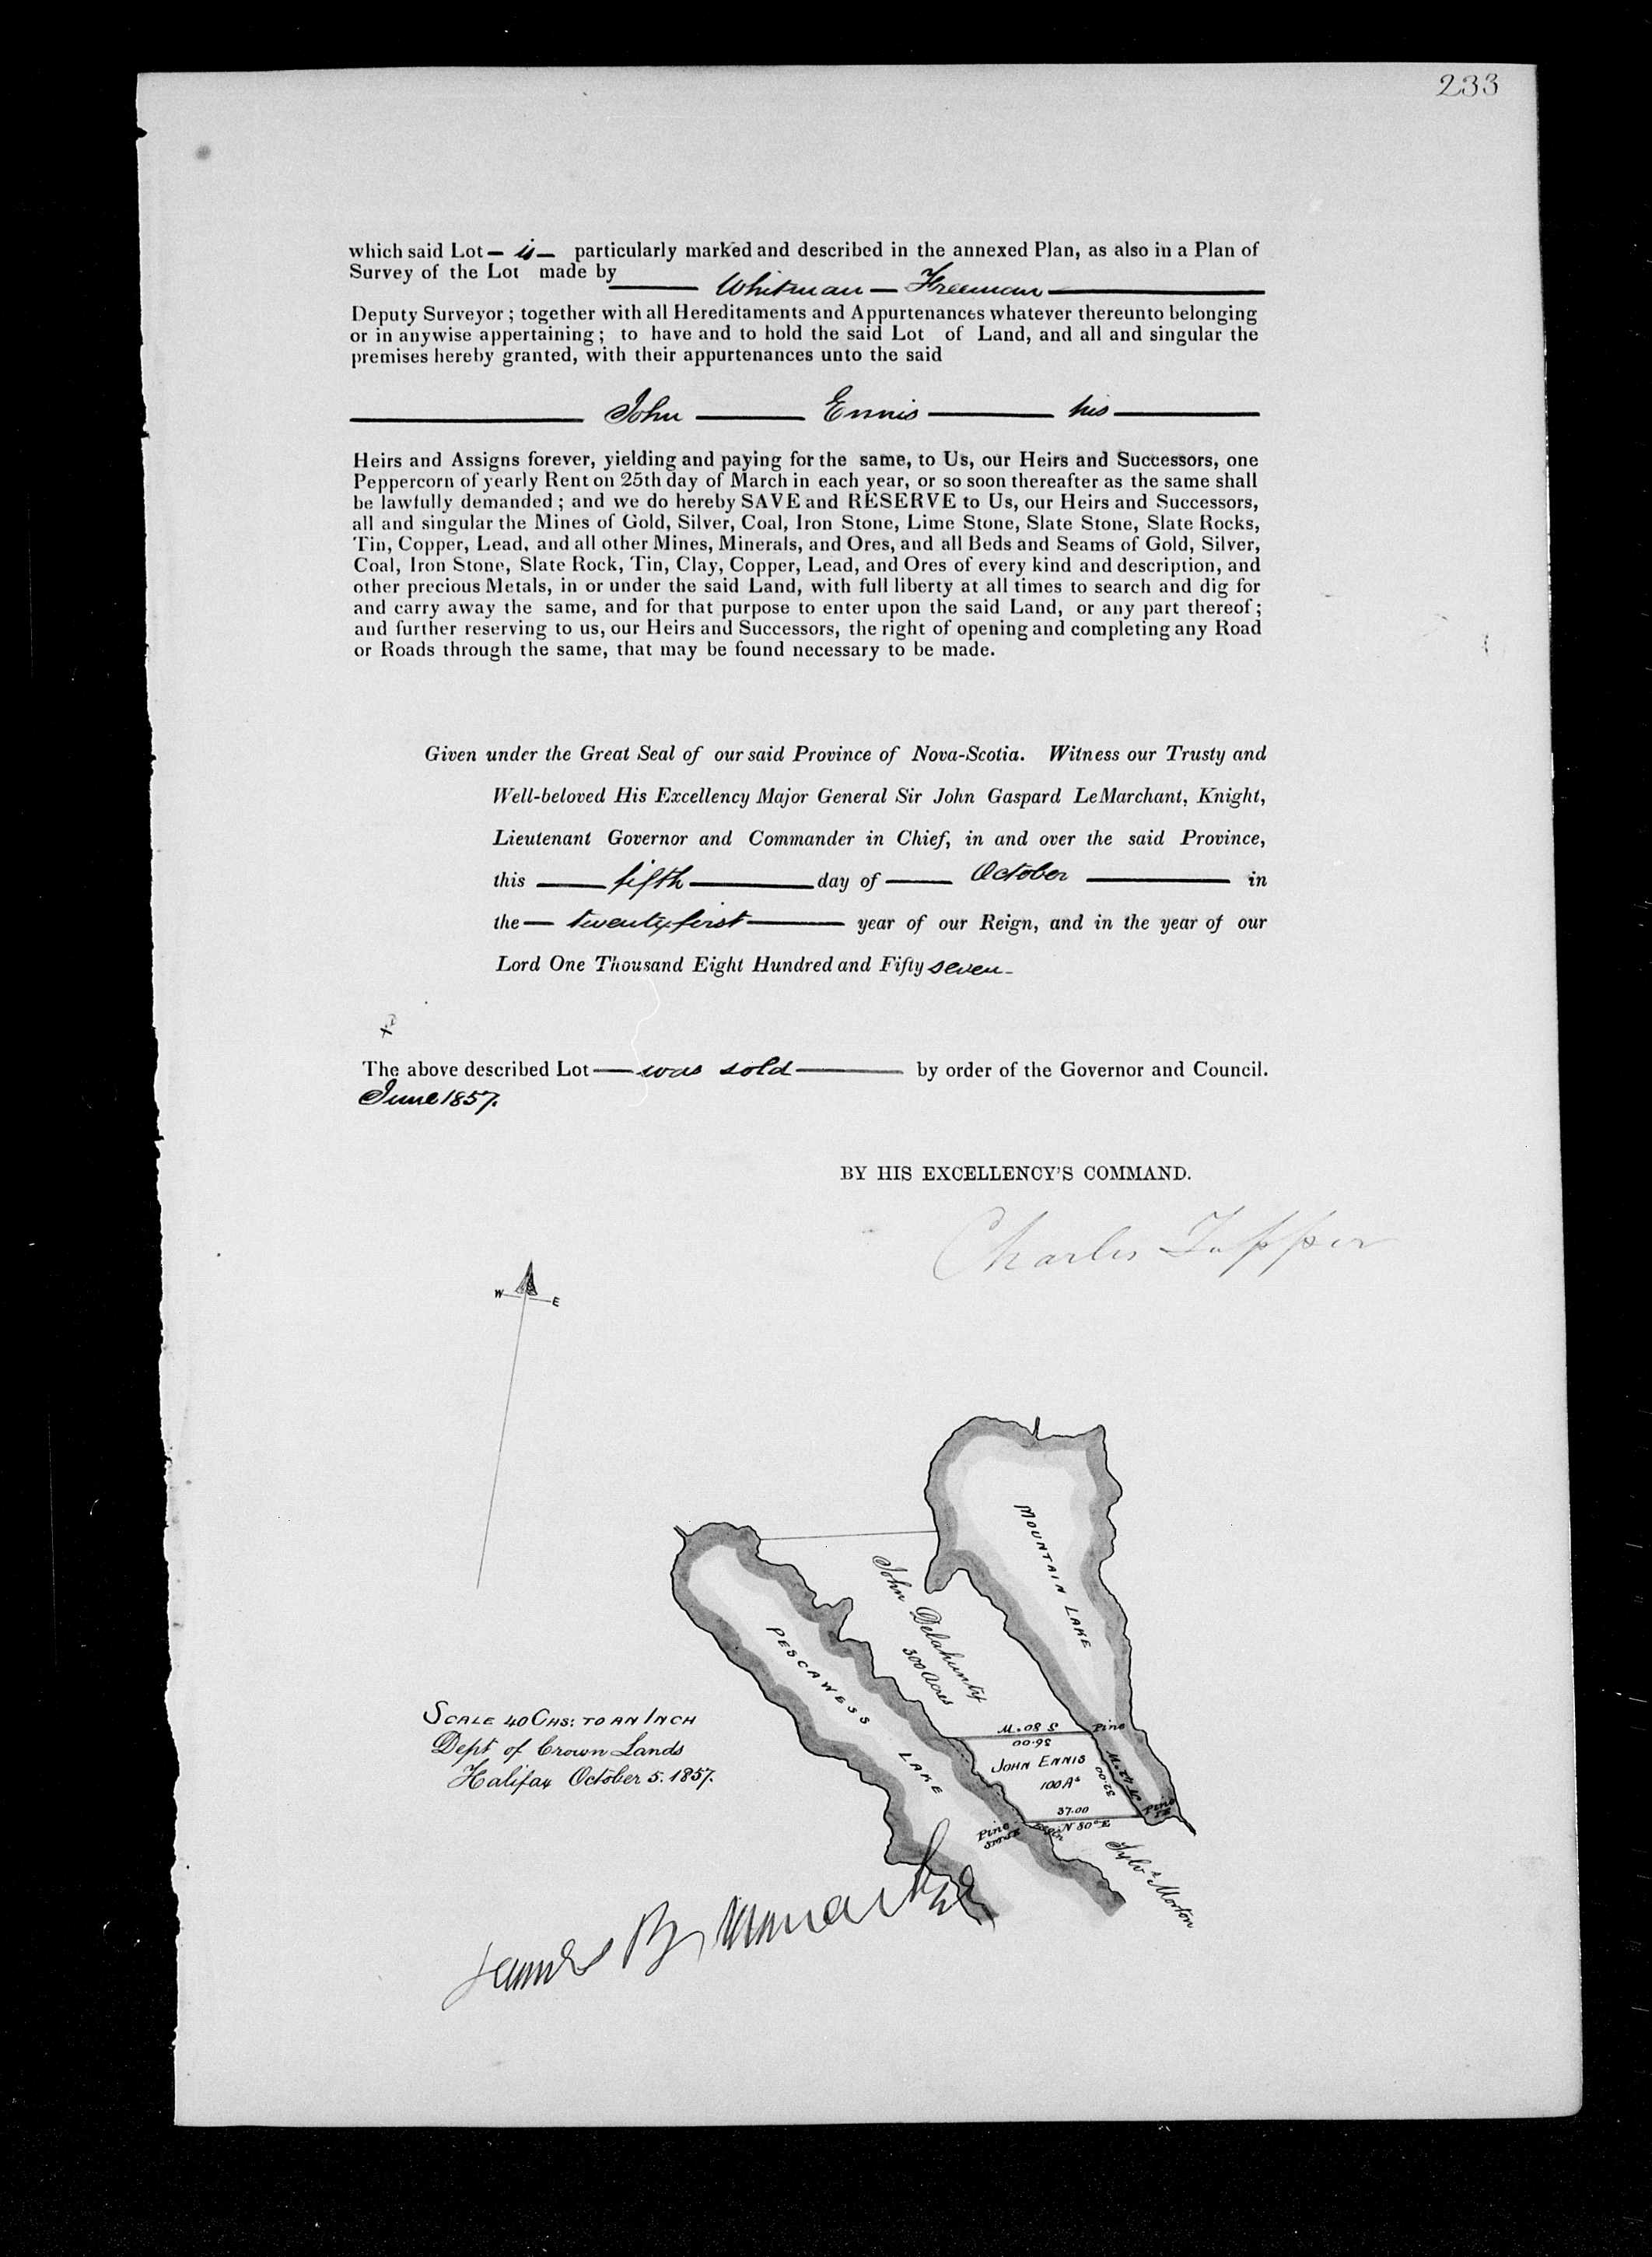 233
which said Lot — is — particularly marked and described in the annexed Plan, as also in a Plan of
Survey of the Lot made by Whitman — Freeman
Deputy Surveyor ; together with all Hereditaments and Appurtenances whatever thereunto belonging
or in anywise appertaining ; to have and to hold the said Lot of Land, and all and singular the
premises hereby granted, with their appurtenances unto the said
John — Ennis — his
Heirs and Assigns forever, yielding and paying for the same, to Us, our Heirs and Successors, one
Peppercorn of yearly Rent on 25th day of March in each year, or so soon thereafter as the same shall
be lawfully demanded ; and we do hereby SAVE and RESERVE to Us, our Heirs and Successors,
all and singular the Mines of Gold, Silver, Coal, Iron Stone, Lime Stone, Slate Stone, Slate Rocks,
Tin, Copper, Lead, and all other Mines, Minerals, and Ores, and all Beds and Seams of Gold, Silver,
Coal, Iron Stone, Slate Rock, Tin, Clay, Copper, Lead, and Ores of every kind and description, and
other precious Metals, in or under the said Land, with full liberty at all times to search and dig for
and carry away the same, and for that purpose to enter upon the said Land, or any part thereof ;
and further reserving to us, our Heirs and Successors, the right of opening and completing any Road
or Roads through the same, that may be found necessary to be made.
Given under the Great Seal of our said Province of Nova-Scotia. Witness our Trusty and
Well-beloved His Excellency Major General Sir John Gaspard LeMarchant, Knight,
Lieutenant Governor and Commander in Chief, in and over the said Province,
this — fifth — day of — October — in
the — twenty first — year of our Reign, and in the year of our
Lord One Thousand Eight Hundred and Fifty seven -
The above described Lot — was sold — by order of the Governor and Council.
June 1857.
BY HIS EXCELLENCY'S COMMAND.
Charles Tupper
W E
MOUNTAIN LAKE
John Delahunty
300 Acres
PESCAWESS LAKE
SCALE 40 CHS: TO AN INCH
Dept of Crown Lands
Halifax October 5. 1857.
S 80° W
36.00
Pine
JOHN ENNIS
100 As
32.00
37.00
N 80° E
Pine
Pine
Begin
Sylvs Morton
James B